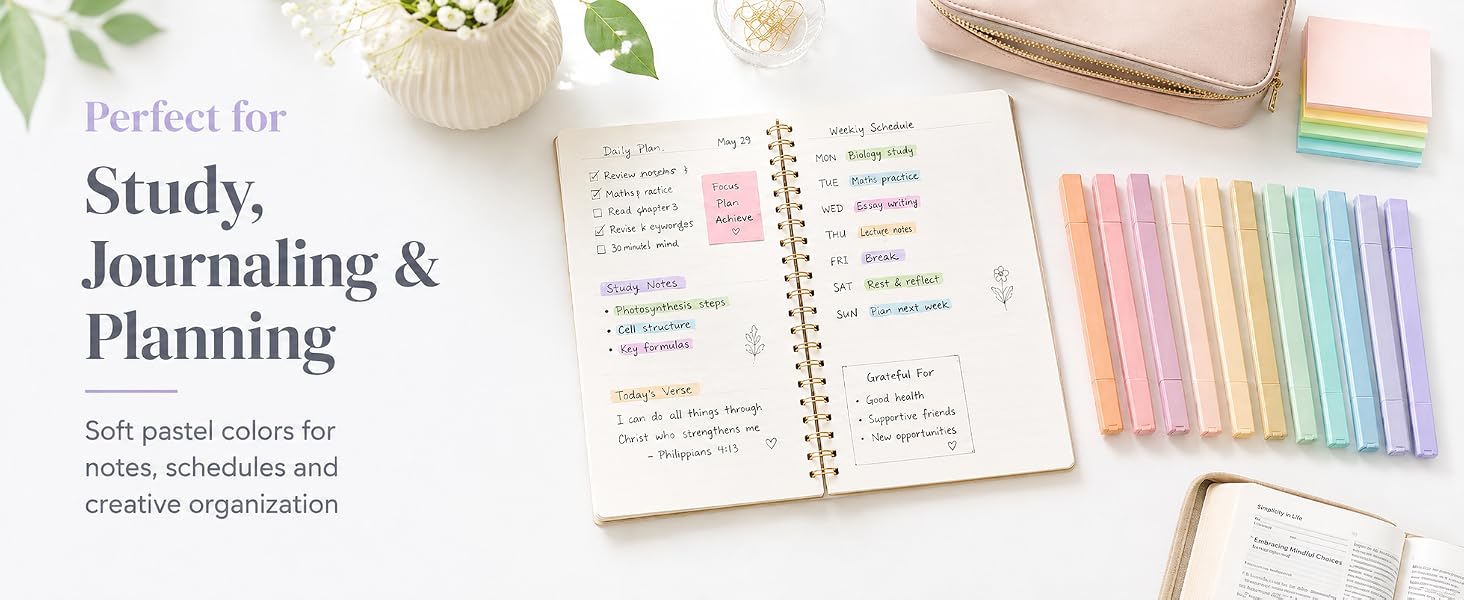 Perfect for
Study,
Journaling &
Planning
Soft pastel colors for
notes, schedules and
creative organization
Daily Plan.
May 29
Review notems
Maths p ractice
Read chapter 3
Revise k eyworges
30 minutel mind
Focus
Plan
Achieve
Study Notes
• Photosynthesis steps
• Cell structure
• Key formulas
Today's Verse
I can do all things through
Christ who strengthens me
– Philippians 4:13
Weekiy Schedule
MON Biology study
TUE Maths practice
WED Essay writing
THU Lecture notes
FRI Break
SAT Rest & reflect
SUN Pian next week
Grateful For
• Good health
• Supportive friends
• New opportunities
Simplicity in Life
Embracing Mindful Choices